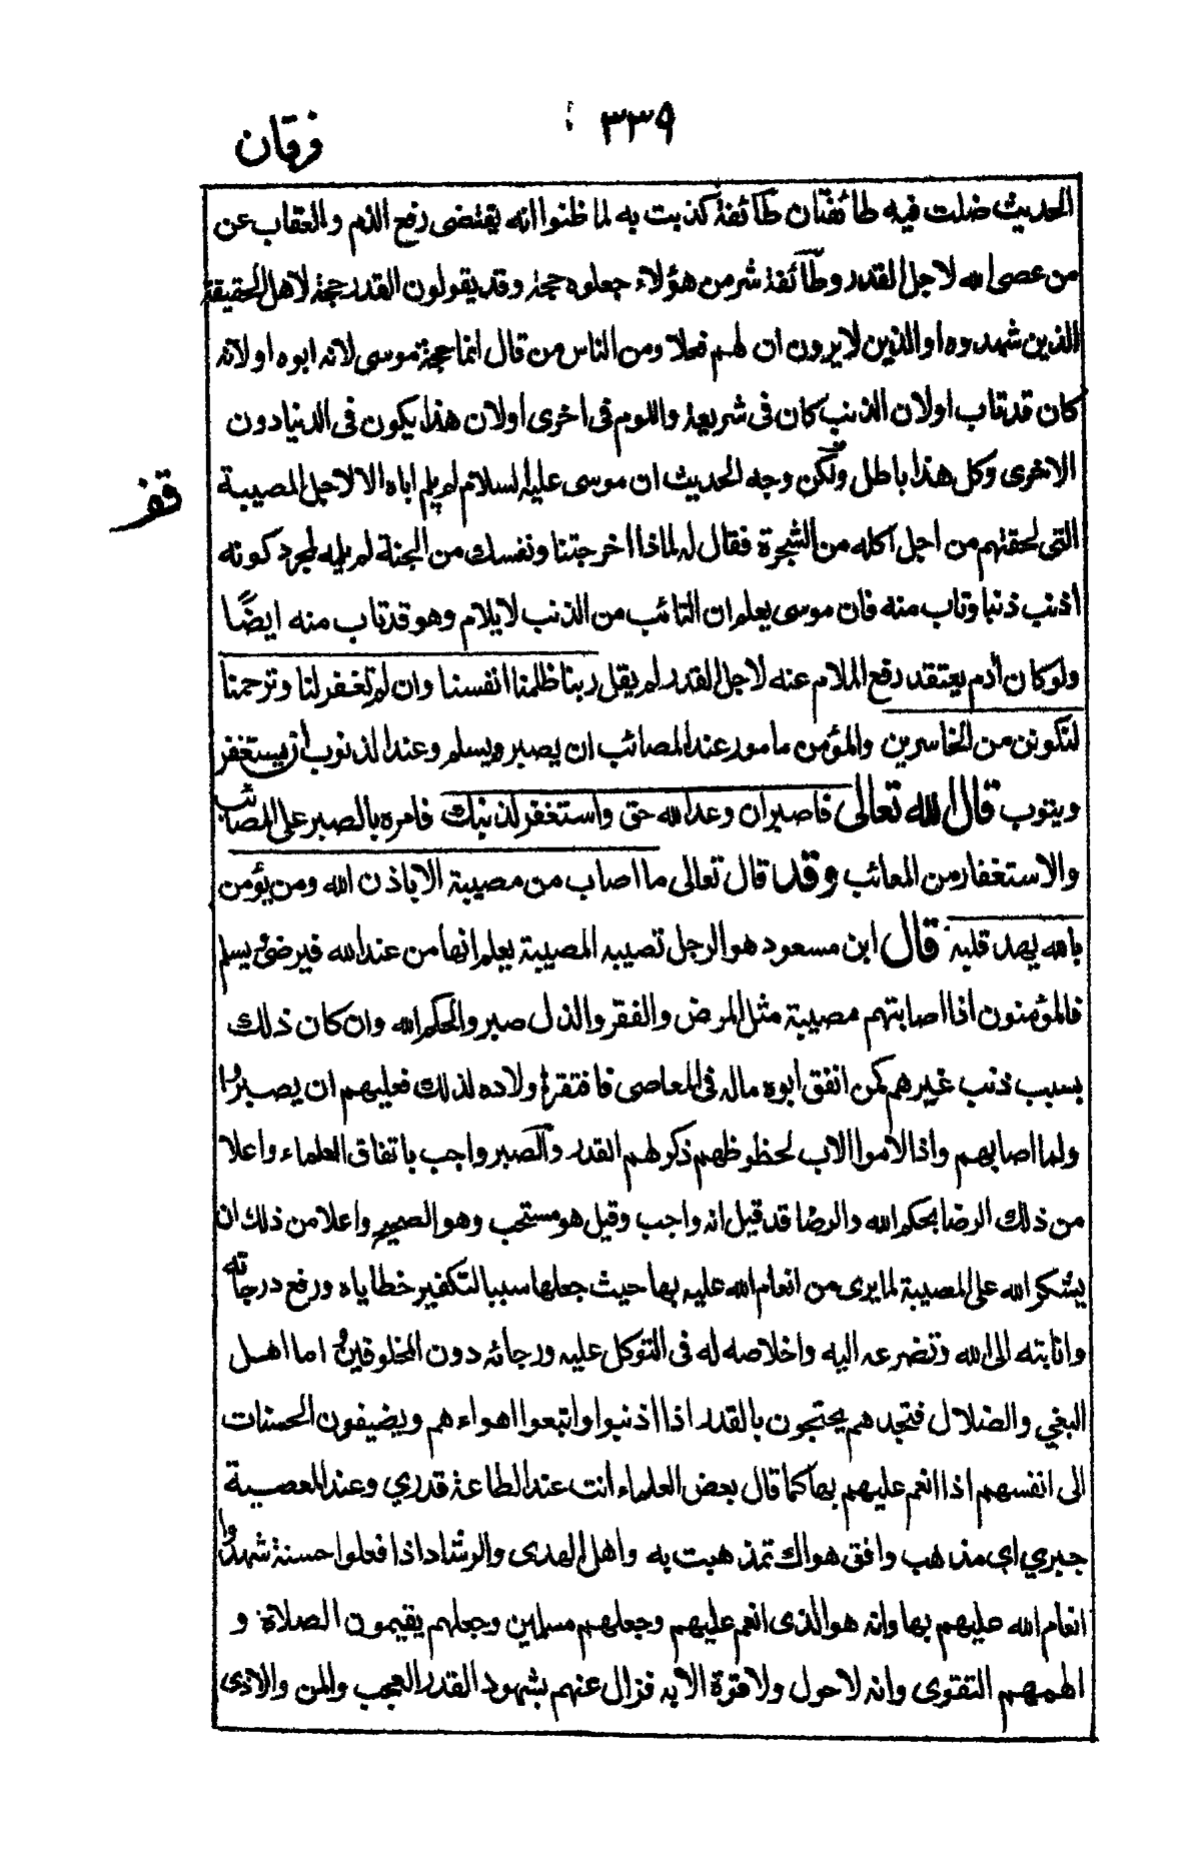 ٣٣٩
فرقان
الحديث ضلت فيه طائفتان طائفة كذبت به لما ظنوا انه يقتضى رفع الذم والعقاب عن
من عصى الله لاجل القدر وطآئفة شر من هؤلاء جعلوه حجة وقد يقولون القدر حجة لاهل الحقيقة
الذين شهدوه او الذين لا يرون ان لهم فعلا ومن الناس من قال انما حجة موسى لانه ابوه او لانه
كان قد تاب او لان الذنب كان فى شريعة واللوم فى اخرى او لان هذا يكون فى الدنيا دون
الاخرى وكل هذا باطل ولكن وجه الحديث ان موسى عليه السلام لم يلم اباه الا لاجل المصيبة
قف
التى لحقتهم من اجل اكله من الشجرة فقال له لماذا اخرجتنا ونفسك من الجنة لم يلمه لمجرد كونه
أذنب ذنبا وتاب منه فان موسى يعلم ان التائب من الذنب لا يلام وهو قد تاب منه ايضًا
ولو كان أدم يعتقد رفع الملام عنه لاجل القدر لم يقل ربنا ظلمنا انفسنا وان لم تغفر لنا وترحمنا
لنكونن من الخاسرين والمؤمن مامور عند المصائب ان يصبر ويسلم وعند الذنوب أن يستغفر
ويتوب قال الله تعالى فاصبر ان وعد الله حق واستغفر لذنبك فامره بالصبر على المصائب
والاستغفار من المعائب وقد قال تعالى ما اصاب من مصيبة الا باذن الله ومن يؤمن
بالله يهد قلبه قال ابن مسعود هو الرجل تصيبه المصيبة يعلم انها من عند الله فيرضى ويسلم
فالمؤمنون اذا اصابتهم مصيبة مثل المرض والفقر والذل صبروا لحكم الله وان كان ذلك
بسبب ذنب غيرهم كمن انفق ابوه ماله فى المعاصى فافتقر اولاده لذلك فعليهم ان يصبروا
ولما اصابهم واذا لاموا الاب لحظوظهم ذكر لهم القدر والصبر واجب باتفاق العلماء واعلا
من ذلك الرضا بحكم الله والرضا قد قيل انه واجب وقيل هو مستحب وهو الصحيح واعلا من ذلك ان
يشكر الله على المصيبة لما يرى من انعام الله عليه بها حيث جعلها سببا لتكفير خطاياه ورفع درجاته
وانابته الى الله وتضرعه اليه واخلاصه له فى التوكل عليه ورجائه دون المخلوقين و اما اهل
البغي والضلال فتجدهم يحتجون بالقدر اذا اذنبوا واتبعوا اهواءهم ويضيفون الحسنات
الى انفسهم اذا انعم عليهم بها كما قال بعض العلماء أنت عند الطاعة قدري وعند المعصية
جبري اى مذهب وافق هواك تمذهبت به واهل الهدى والرشاد اذا فعلوا حسنة شهدوا
انعام الله عليهم بها وانه هو الذى انعم عليهم وجعلهم مسلمين وجعلهم يقيمون الصلاة و
الهمهم التقوى وانه لا حول ولا قوة الا به فزال عنهم بشهود القدر العجب والمن والاذى